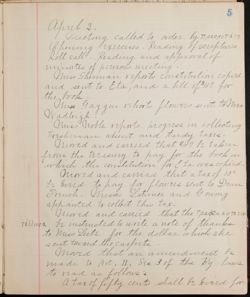 5
April 2.
Meeting called to order by
Opening Exercises. Reading of scriptures
Roll call. Reading and approval of
minutes of previous meeting.
Miss Thurman reports constitution copied
and sent to Eta, and a bill of for
the book.
Miss Gaggin reports flowers sent to Mrs
Wadleigh.
Miss Noble reports progress in collecting
Freshman and tardy taxes.
Moved and carried that be taken
from the treasury to pay for the book in
which the constitution for Eta was copied.
Moved and carried that a tax of
be levied to pay for flowers sent to Dean
French. Misses and Ewing
appointed to collect this tax.
Moved and carried that the
be instructed to write a note of thanks
to Miss for the dollar which she
sent toward the carpets.
Moved that an amendment be
made to Art. II, Sec of the By-laws
to read as follows:
A tax of fifty cents shall be levied for